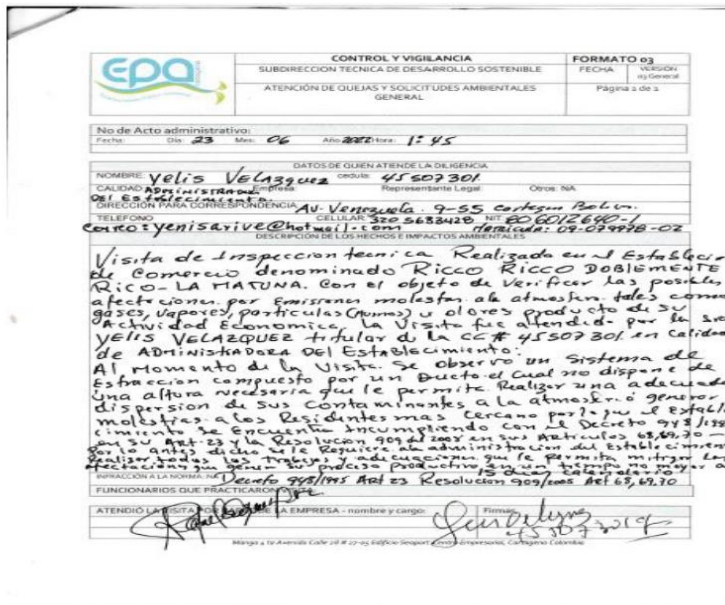 epa
CONTROL Y VIGILANCIA
FORMATO 03
SUBDIRECCION TECNICA DE DESARROLLO SOSTENIBLE
FECHA
VERSIÓN
03 General
ATENCIÓN DE QUEJAS Y SOLICITUDES AMBIENTALES
GENERAL
Página 1 de 1
No de Acto administrativo:
Fecha: Día: 23 Mes: 06 Año 2022 Hora: 1:45
DATOS DE QUIEN ATIENDE LA DILIGENCIA
NOMBRE: Yelis VELAZquez cedula: 45507301.
CALIDAD ADMINISTRADORA Empresa: Representante Legal: Otros: NA
DEL Establecimiento.
DIRECCIÓN PARA CORRESPONDENCIA AV. Venezuela. 9-55 Cartagena Bolivar.
TELEFONO CELULAR: 320 5683428 NIT 806012640-1
correo: yenisarive@hotmail.com Matricula: 09-079978-02
DESCRIPCIÓN DE LOS HECHOS E IMPACTOS AMBIENTALES
Visita de Inspeccion tecnica Realizada en el Establecimi
de Comercio denominado RICCO RICCO DOBLEMENTE
RICO - LA MATUNA. Con el objeto de Verificar las posibles
afectaciones por Emisiones molestas a la atmosfera tales como
gases, vapores, particulas (Humos) u olores producto de su
Actividad Economica. La Visita fue atendida por la Sra
YELIS VELAZQUEZ titular de la CC# 45507301 en calidad
de ADMINISTRADORA DEl EstAblEcimiento.
Al momento de la Visita. Se observo un Sistema de
Extraccion compuesto por un Ducto el cual no dispone de
una altura necesaria que le permita Realizar una adecuada
dispersion de sus contaminantes a la atmosfera ó generar
molestias a los Residentes mas cercano por lo que el Establ
cimiento se Encuentra incumpliendo con el Decreto 948/1995
en su Art-23 y la Resolucion 909 del 2008 en sus Articulos 68,69,70 -
Por lo antes dicho se le Requiere a la administracion del Establecimiento
Realizar todos los trabajos y adecuaciones que le Permita mitigar las
afectaciones que genera su proceso productivo en un tiempo no mayor a
15 dias calendarios
INFRACCIÓN A LA NORMA: Decreto 948/1995 Art 23 Resolucion 909/2008 Art 68,69,70
FUNCIONARIOS QUE PRACTICARON
ATENDIÓ LA VISITA LA EMPRESA - nombre y cargo: Firma:
Manga 4 ta Avenida Calle 28 # 27-05 Edificio Seaport Centro Empresarial, Cartagena Colombia